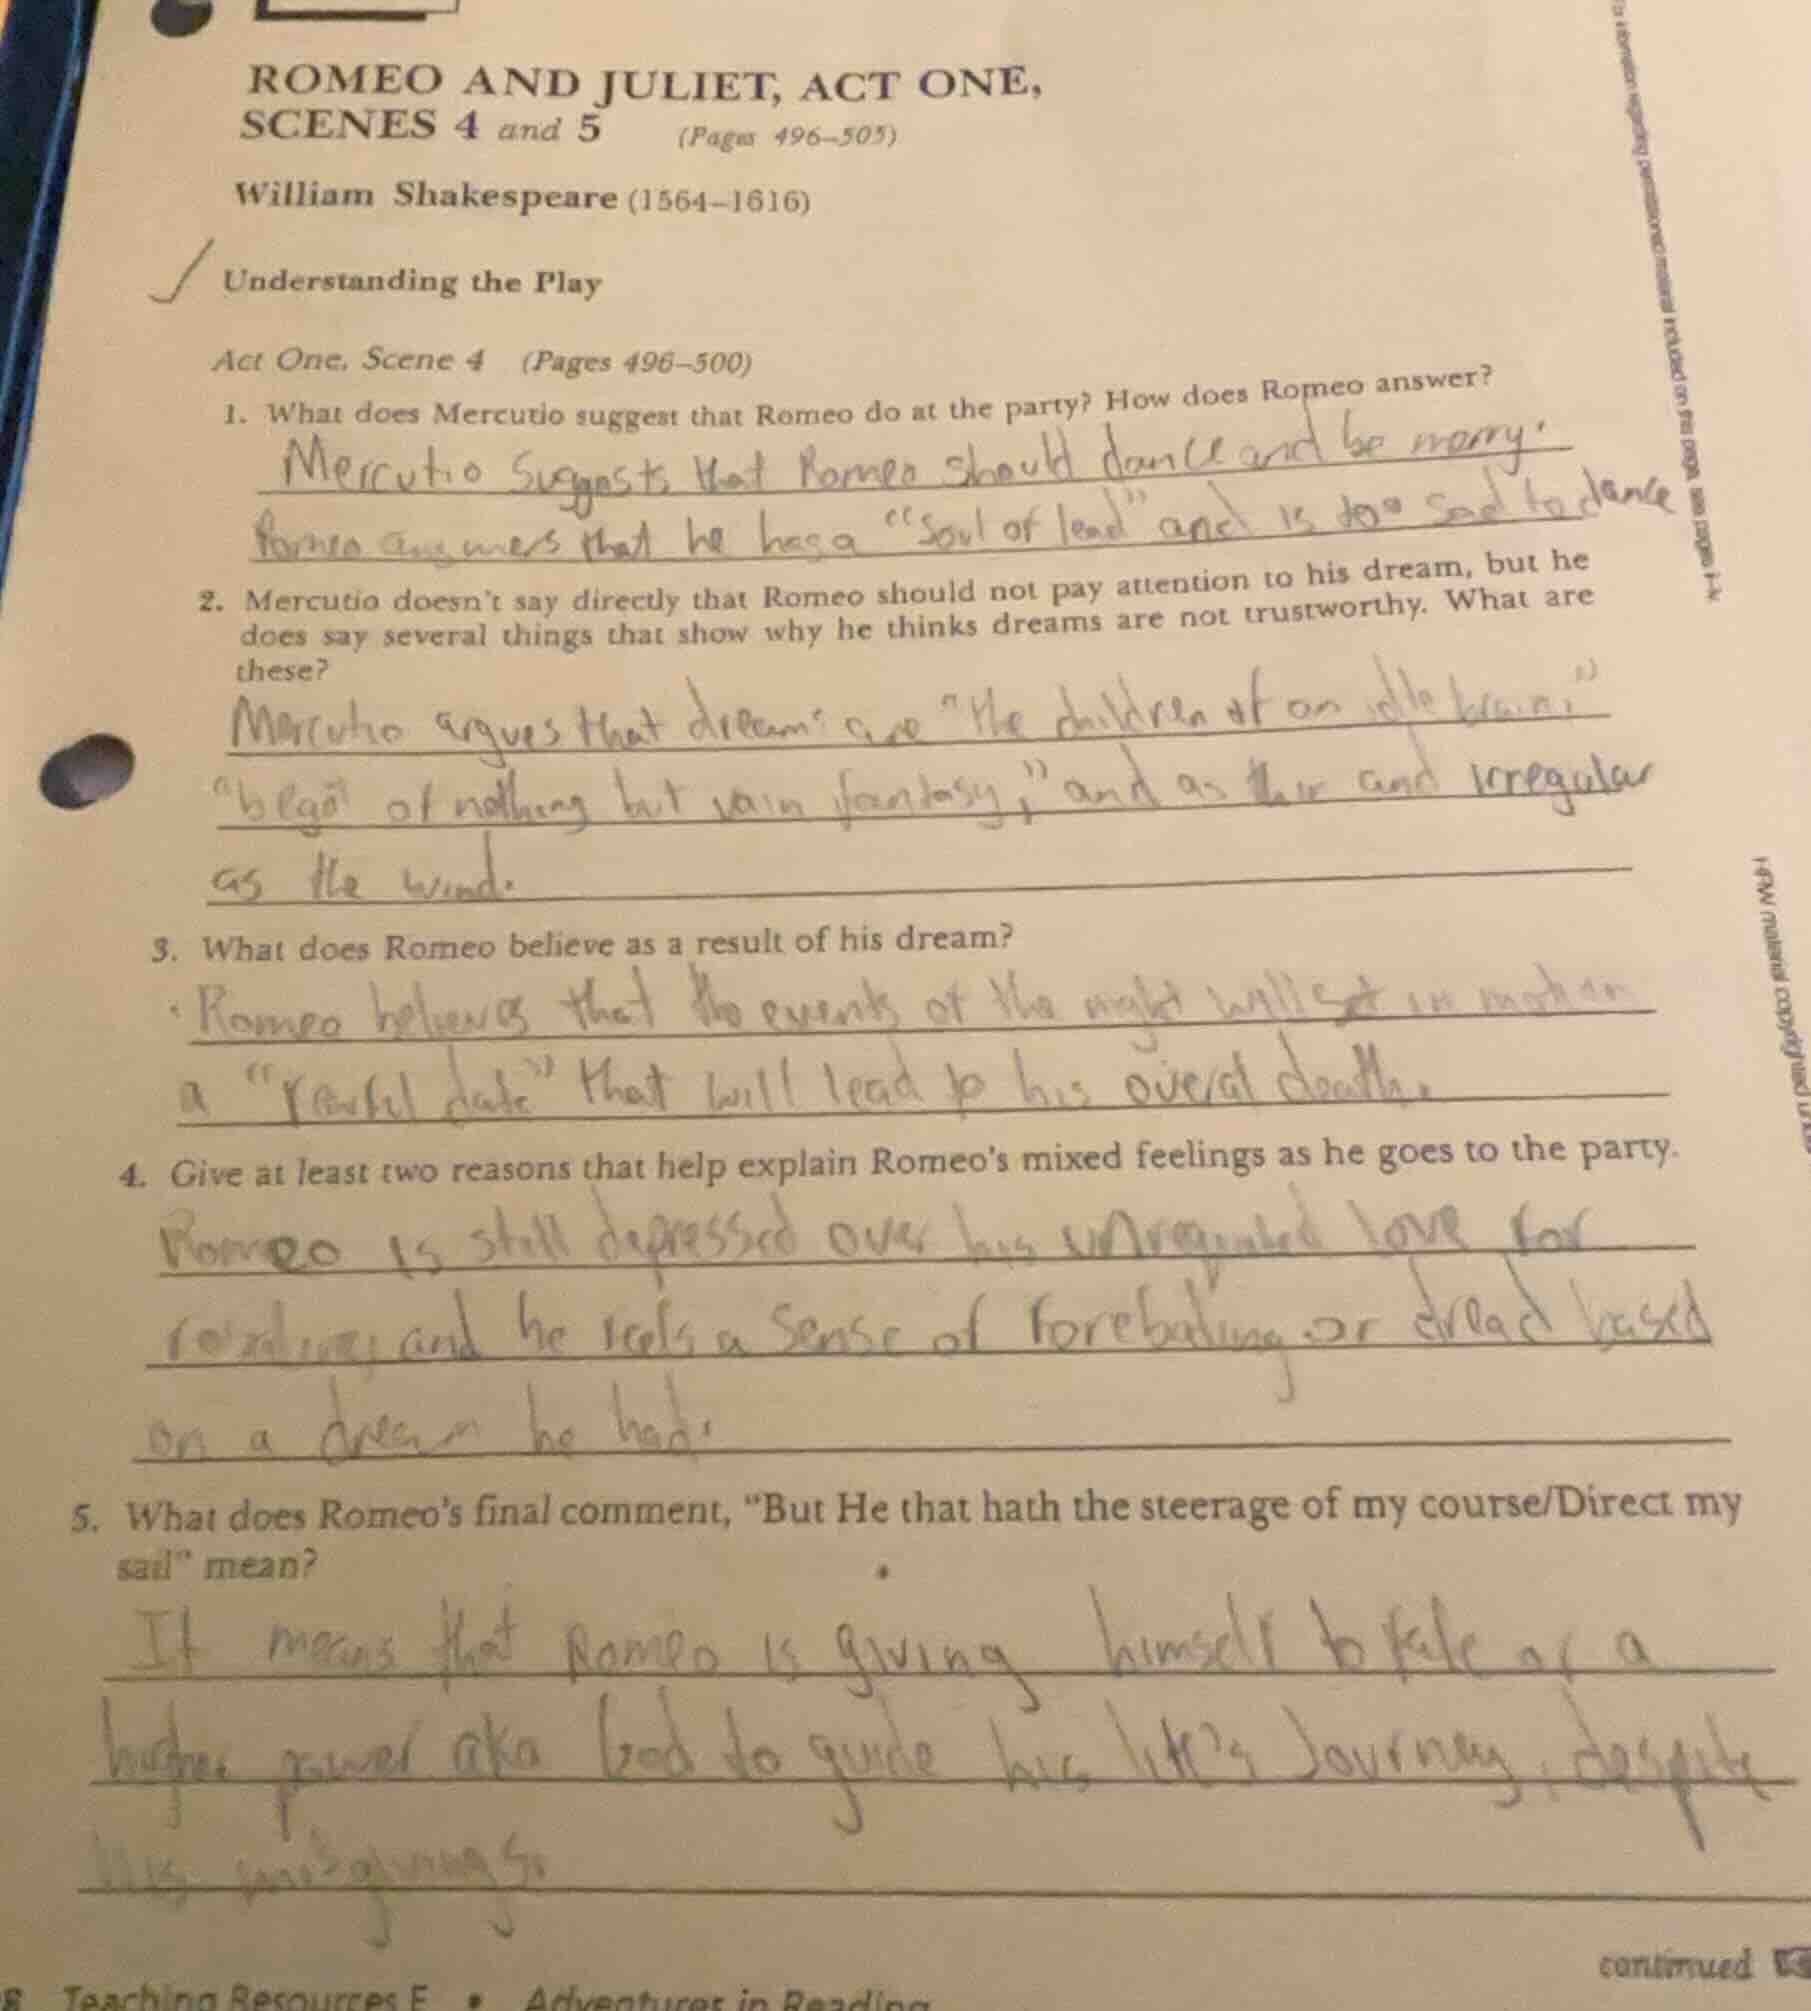 ROMEO AND JULIET, ACT ONE,
SCENES 4 and 5 (Pages 496–505)
William Shakespeare (1564–1616)
Understanding the Play
Act One, Scene 4 (Pages 496–500)
1. What does Mercutio suggest that Romeo do at the party? How does Romeo answer?
Mercutio suggests that Romeo should dance and be merry.
Romeo answers that he has a "soul of lead" and is too sad to dance
2. Mercutio doesn't say directly that Romeo should not pay attention to his dream, but he
does say several things that show why he thinks dreams are not trustworthy. What are
these?
Mercutio argues that dreams are "the children of an idle brain,"
"begot of nothing but vain fantasy," and as thin and irregular
as the wind.
3. What does Romeo believe as a result of his dream?
Romeo believes that the events of the night will set in motion
a "fearful date" that will lead to his overal death.
4. Give at least two reasons that help explain Romeo's mixed feelings as he goes to the party.
Romeo is still depressed over his unrequited love for
and he feels a sense of forebading or dread based
on a dream he had.
5. What does Romeo's final comment, "But He that hath the steerage of my course/Direct my
sail" mean?
It means that Romeo is giving himself to fate or a
higher power aka God to guide his life's Journey, despite
his misgivings.
continued
Teaching Resources E • Adventures in Reading
For information regarding permission(s) material included on this page, see pages i–iv
HRW material copyrighted